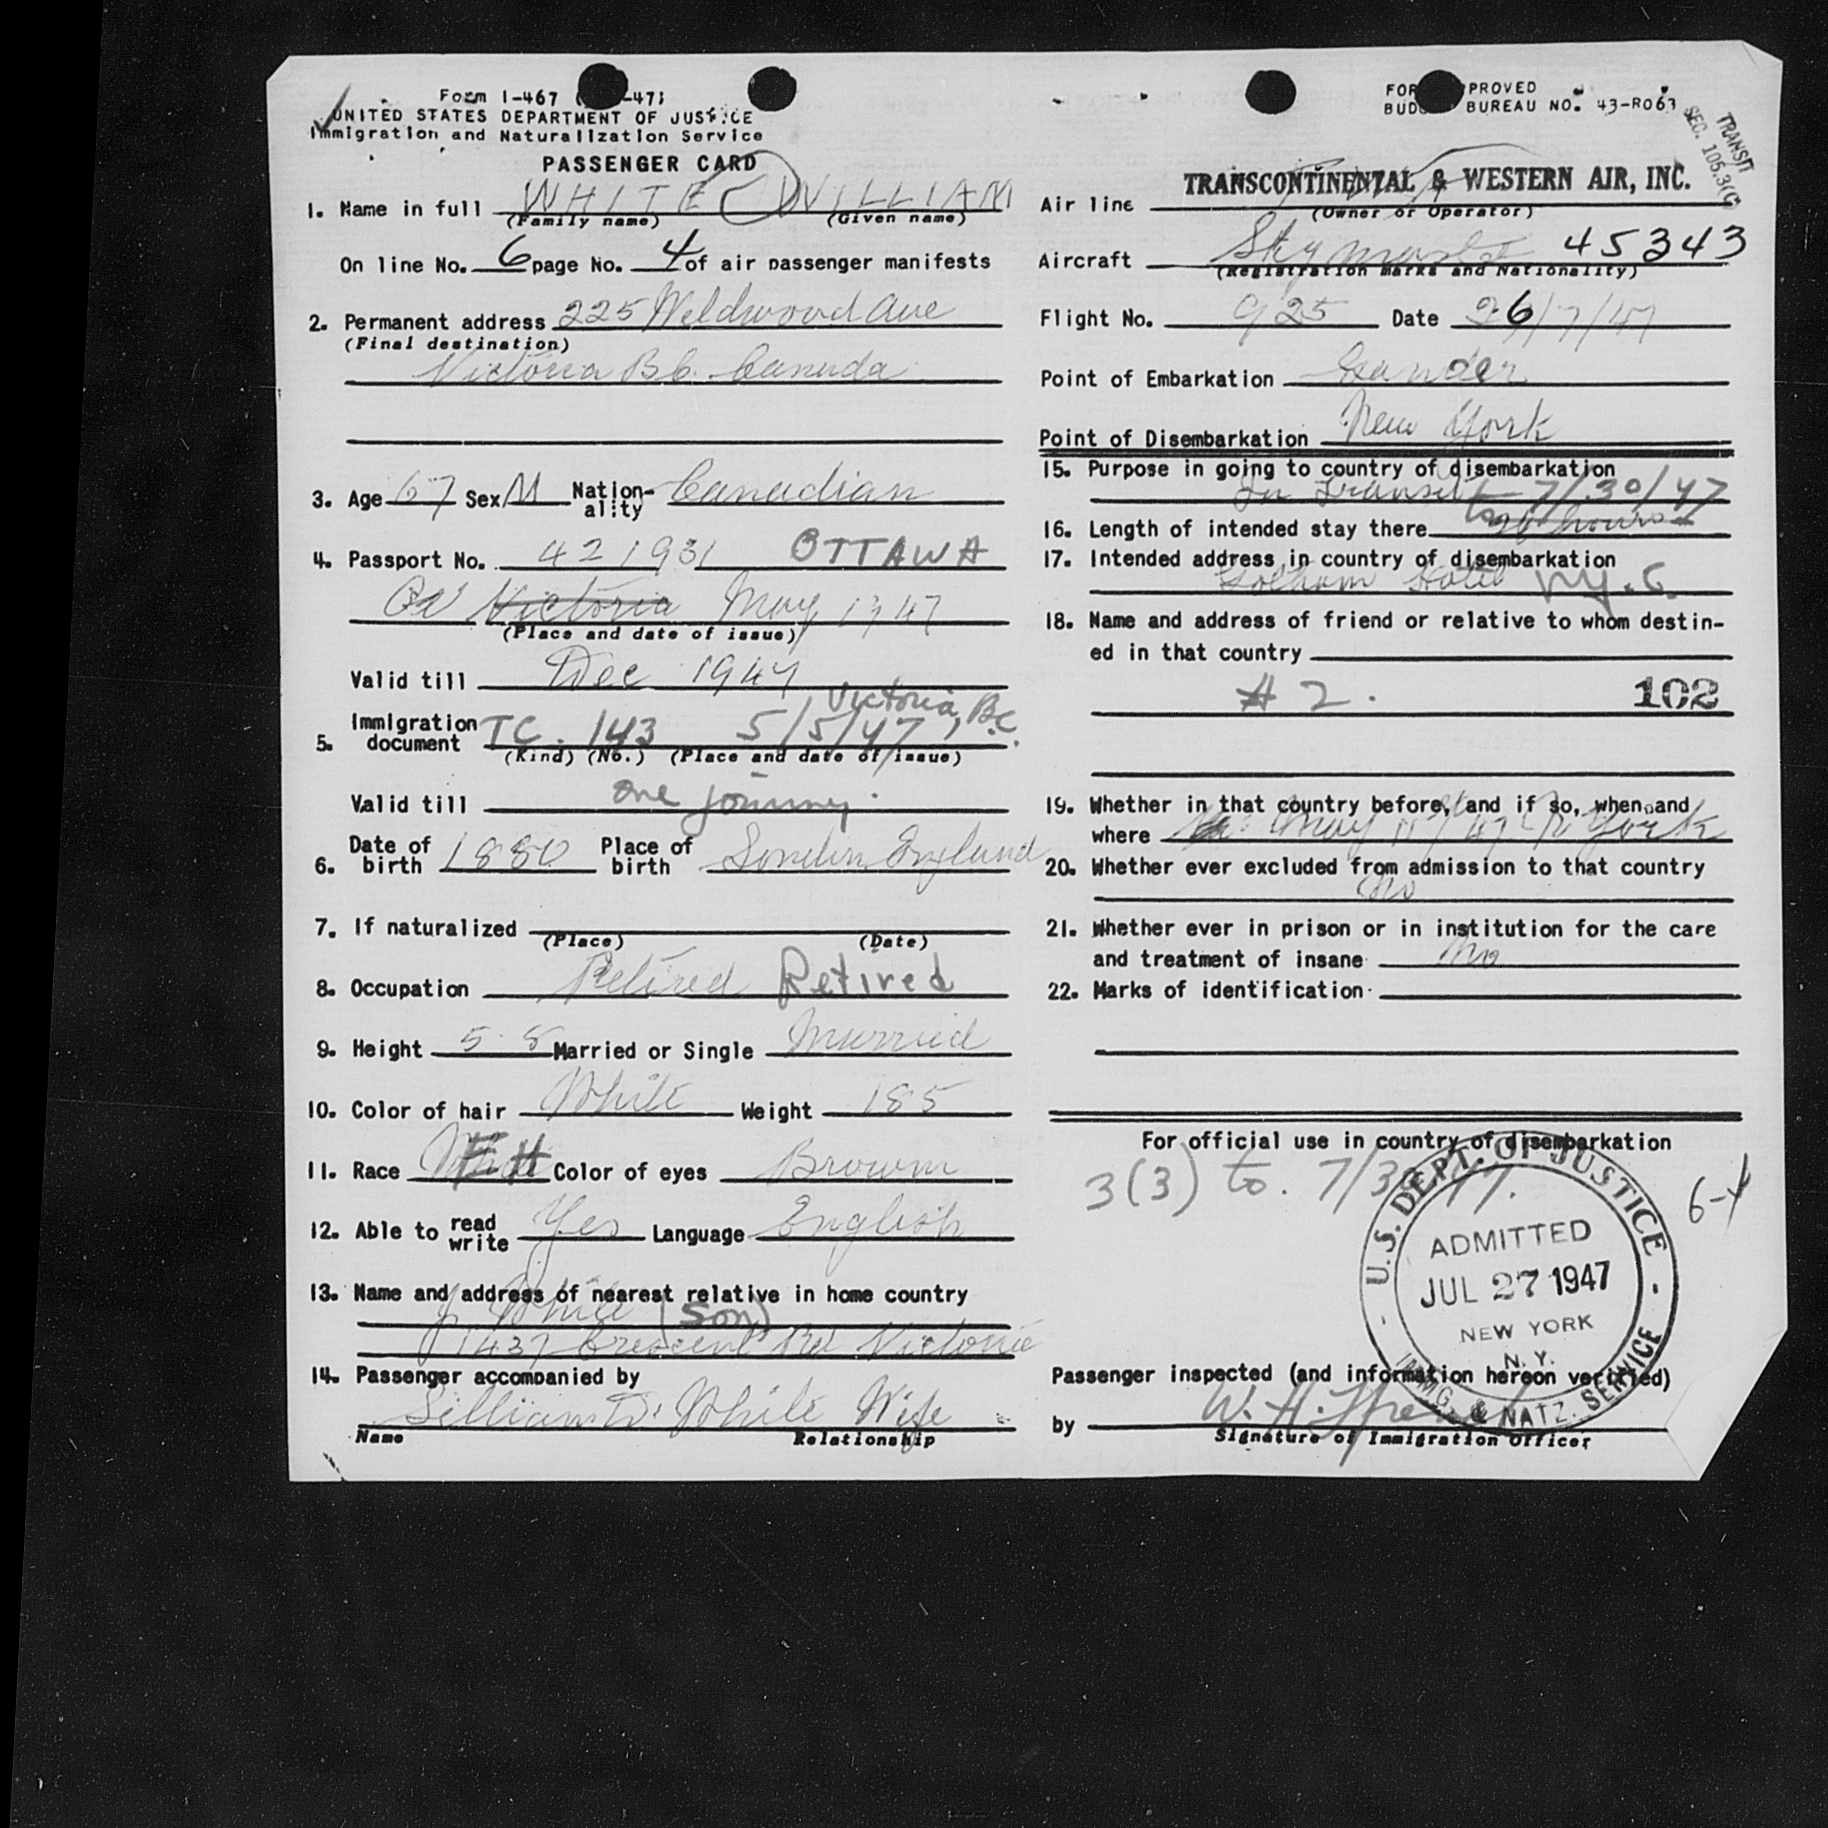 Form I-467 ( -47)
UNITED STATES DEPARTMENT OF JUSTICE
Immigration and Naturalization Service
PASSENGER CARD
FOR PROVED
BUD BUREAU NO. 43-R063
TRANSIT
SEC. 105.3(C)
1. Name in full WHITE WILLIAM
(Family name) (Given name)
On line No. 6 page No. 4 of air passenger manifests
2. Permanent address 225 Wildwood Ave
(Final destination)
Victoria B.C. Canada
3. Age 67 Sex M Nation-ality Canadian
4. Passport No. 421931 OTTAWA
Victoria May 1947
(Place and date of issue)
Valid till Dec 1947
Victoria, B.C.
5. Immigration document TC. 143 5/5/47
(Kind) (No.) (Place and date of issue)
Valid till one journey.
6. Date of birth 1880 Place of birth London England
7. If naturalized
(Place) (Date)
8. Occupation Retired Retired
9. Height 5.8 Married or Single Married
10. Color of hair White Weight 185
11. Race Color of eyes Brown
12. Able to read write Yes Language English
13. Name and address of nearest relative in home country
J. White (Son)
1437 Crescent Rd Victoria
14. Passenger accompanied by
Lillian D. White Wife
Name Relationship
TRANSCONTINENTAL & WESTERN AIR, INC.
Air line TWA
(Owner or Operator)
Aircraft Skymaster 45343
(Registration marks and Nationality)
Flight No. 925 Date 26/7/47
Point of Embarkation Gander
Point of Disembarkation New York
15. Purpose in going to country of disembarkation
In Transit to 7/30/47
16. Length of intended stay there hours
17. Intended address in country of disembarkation
Gotham Hotel N.Y.C.
18. Name and address of friend or relative to whom destin-
ed in that country
# 2. 102
19. Whether in that country before, and if so, when and
where May 11/47 N York
20. Whether ever excluded from admission to that country
No
21. Whether ever in prison or in institution for the care
and treatment of insane No
22. Marks of identification
For official use in country of disembarkation
3(3) to. 7/30/47.
6-4
U.S. DEPT. OF JUSTICE
ADMITTED
JUL 27 1947
NEW YORK
N. Y.
IMMIG. & NATZ. SERVICE
Passenger inspected (and information hereon verified)
by W. H.
Signature of Immigration Officer